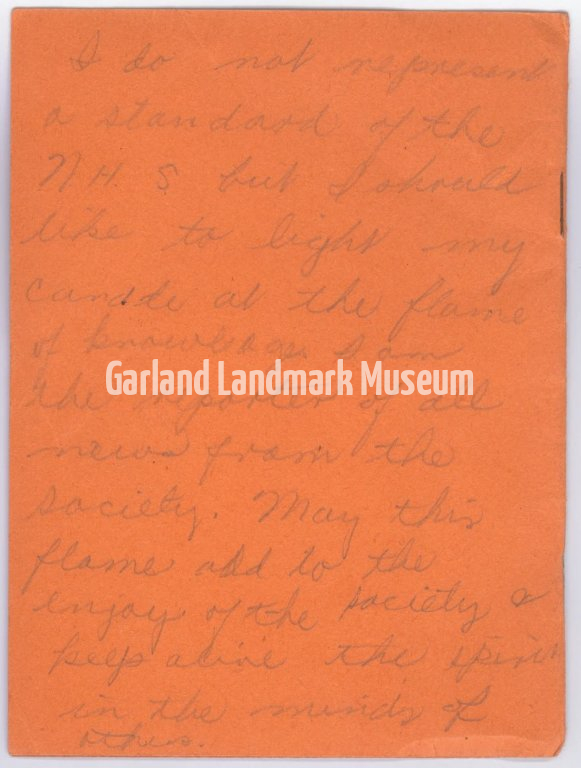 I do not represent
a standard of the
N.H.S but I should
like to light my
candle at the flame
of knowledge. I am
Garland Landmark Museum
the reporter of all
news from the
society. May this
flame add to the
enjoy of the society &
keep alive the spirit
in the minds of
others.